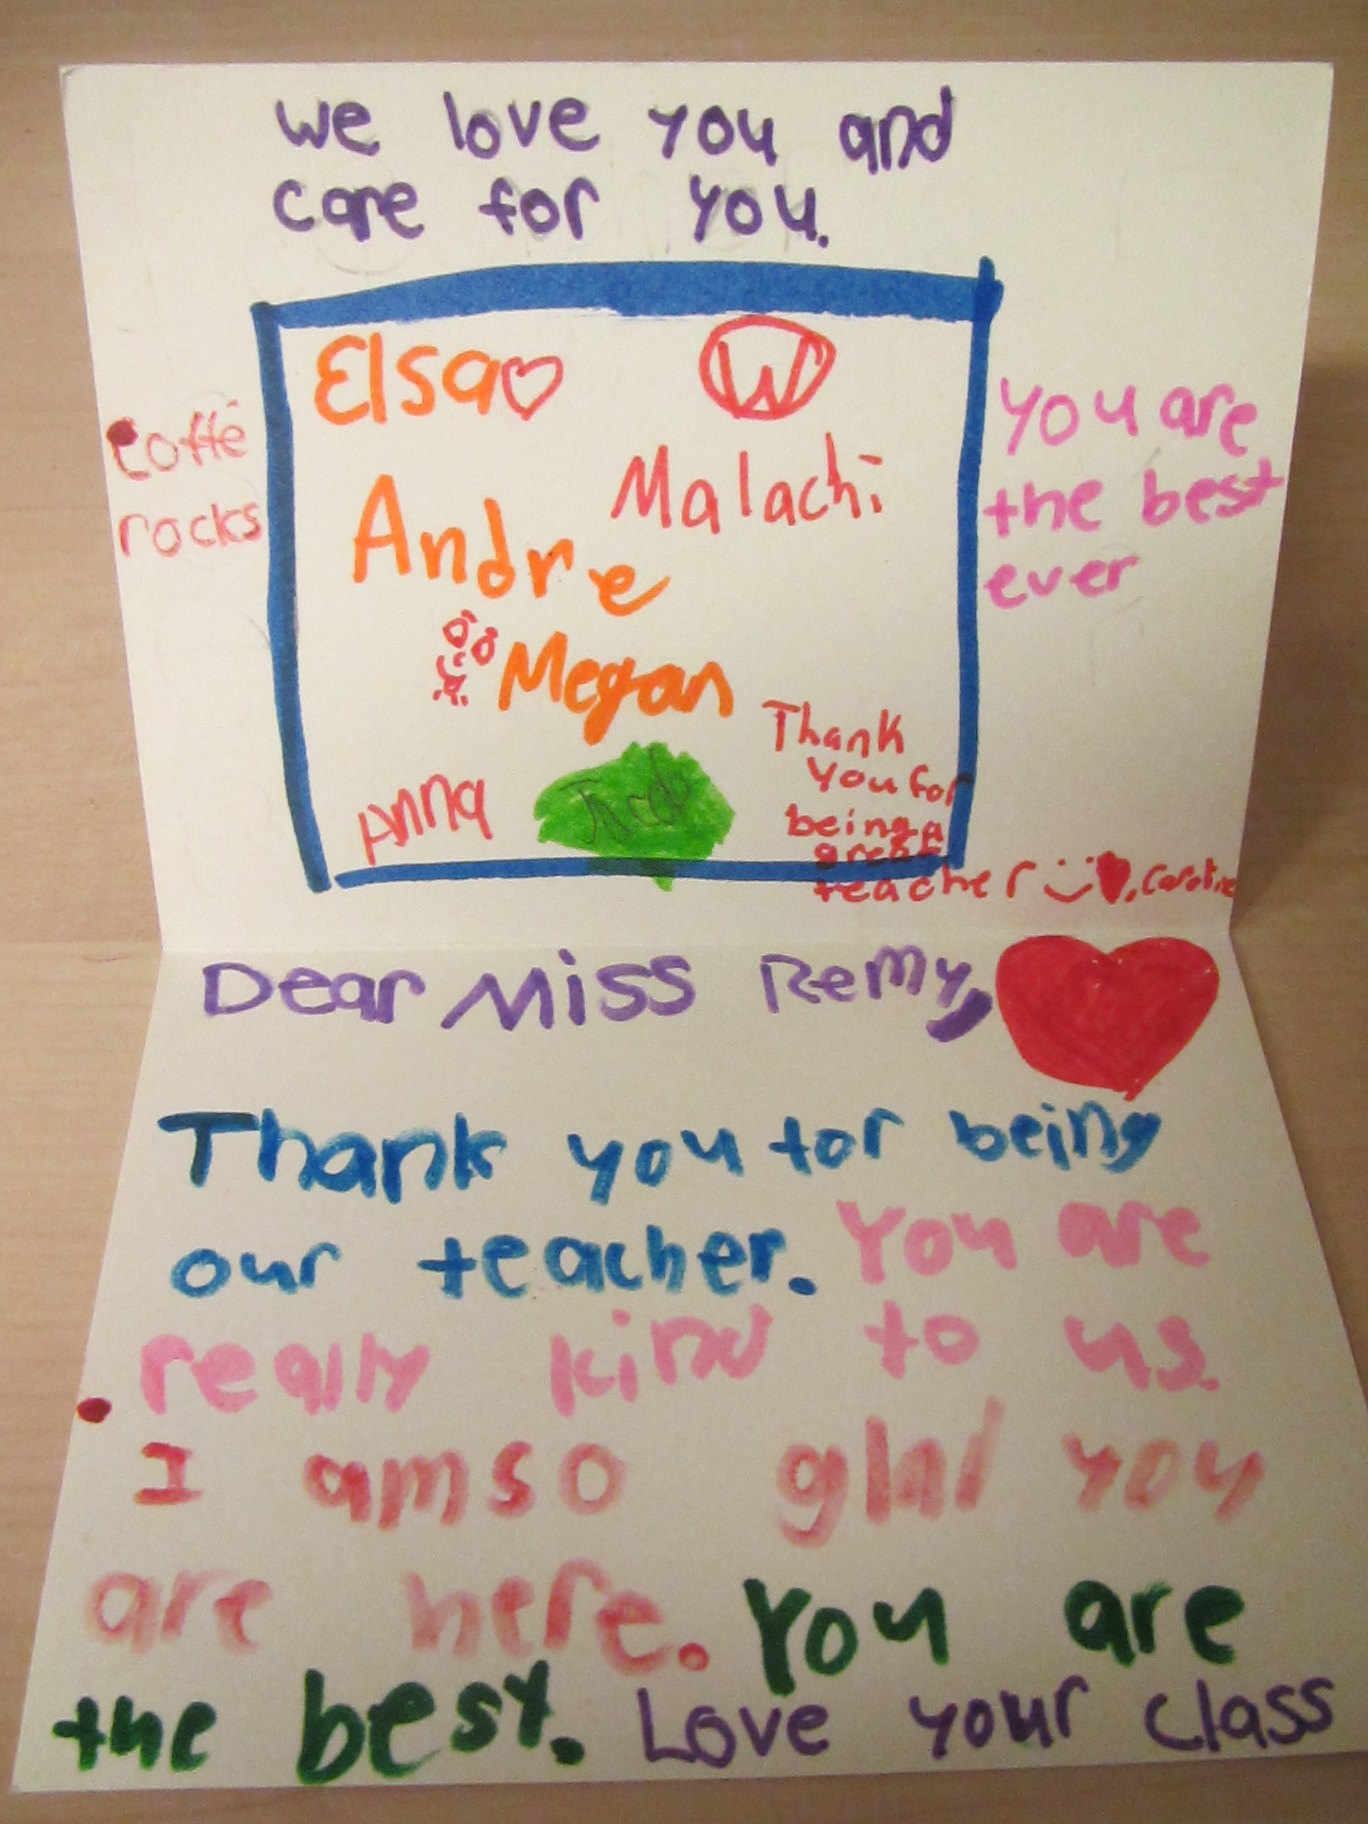 We love you and
care for you.
Elsa
W
coffe
rocks
You are
the best
ever
Malachi
Andre
Megan
Anna
Thank
You for
being a
great
teacher , Caroline
Dear Miss Remy,
Thank you for being
our teacher. You are
really kind to us.
I am so glad you
are here. You are
the best. Love your class